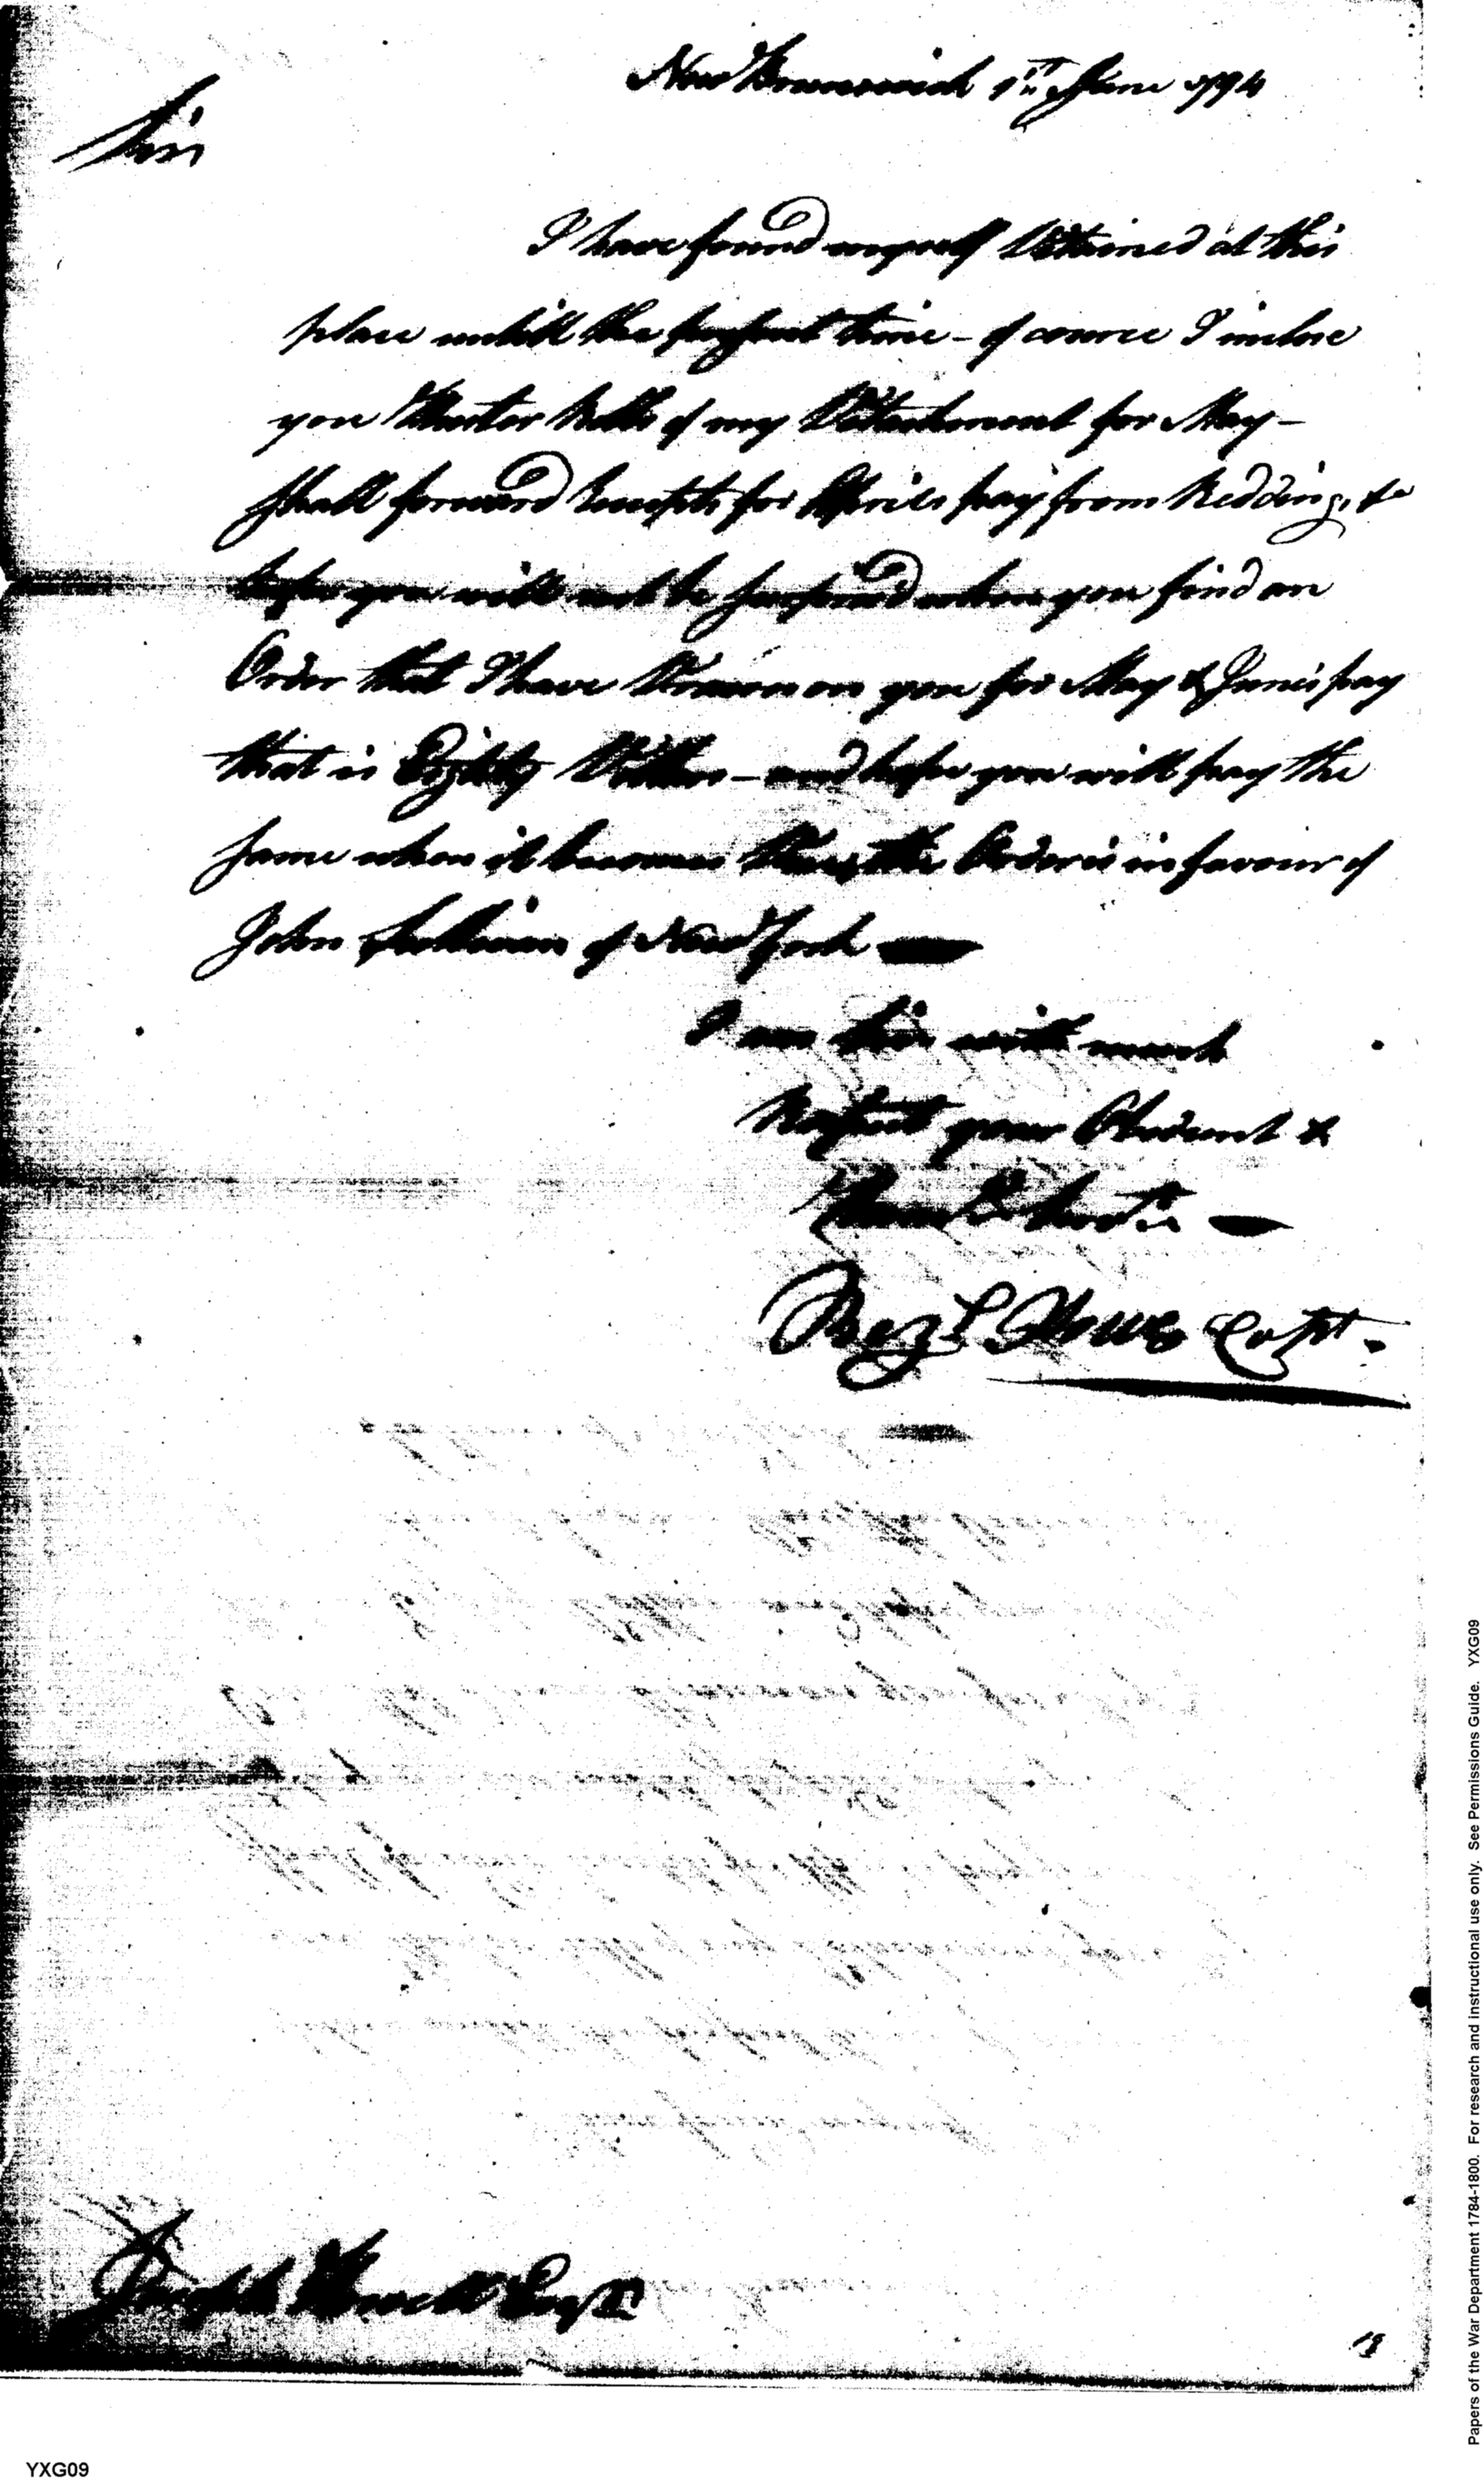 New Brunswick 1st June 1794
Sir
I have found myself Detained at this
place untill the present time - of course I inclose
you Muster Rolls of my Detachment for May -
shall forward Receipts for Aprils pay from Redding, &
hope you will not be surprised when you find an
Order that I have Drawn on you for May & June's pay
that is Eighty Dollars - and hope you will pay the
same when it becomes Due, the Order is in favour of
John Sullivan of New York
I am Sir with much
Respect your Obedient &
Humb Servt
Bezl Howe Capt.
Joseph Howell Esqr
18
Papers of the War Department 1784-1800. For research and instructional use only. See Permissions Guide. YXG09
YXG09